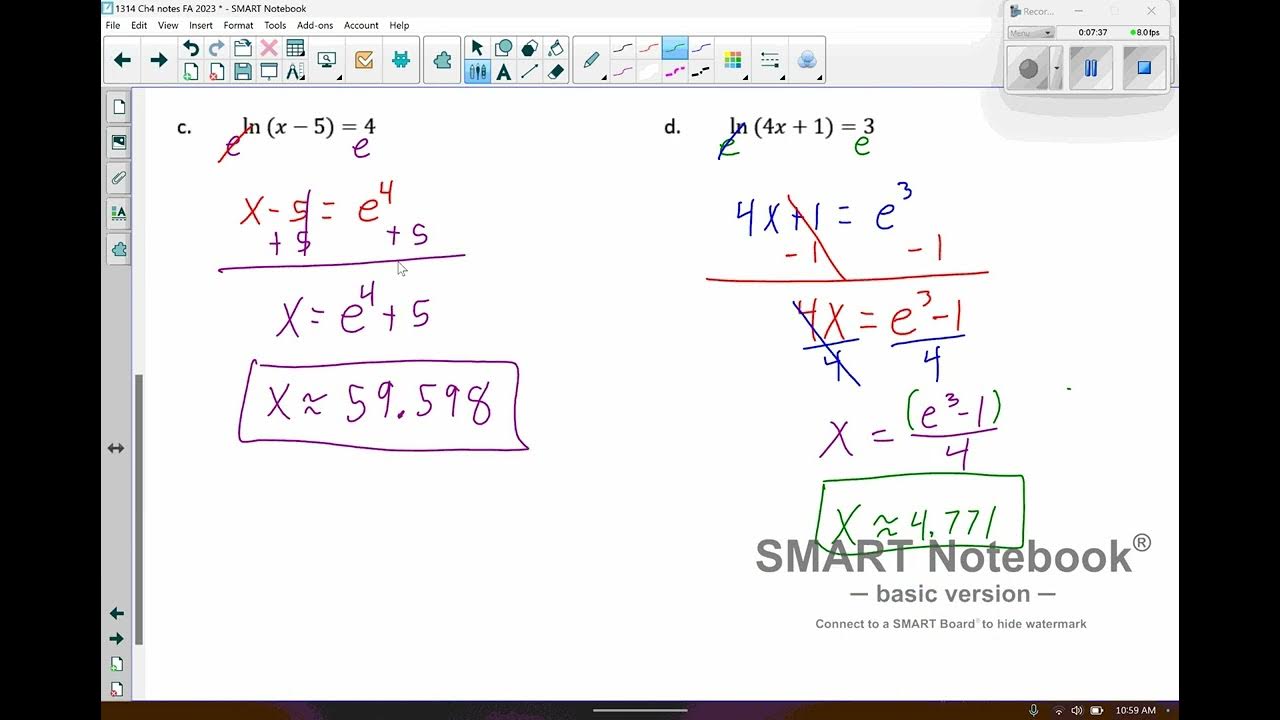 1314 Ch4 notes FA 2023 * - SMART Notebook
File Edit View Insert Format Tools Add-ons Account Help
Recor...
Menu
0:07:37
8.0 fps
c. ln (x − 5) = 4
e e
x - 5 = e^4
+ 5 + 5
x = e^4 + 5
x ≈ 59.598
d. ln (4x + 1) = 3
e e
4x + 1 = e^3
- 1 - 1
4x = e^3 - 1
4 4
x = (e^3 - 1)
4
x ≈ 4.771
SMART Notebook®
— basic version —
Connect to a SMART Board® to hide watermark
10:59 AM